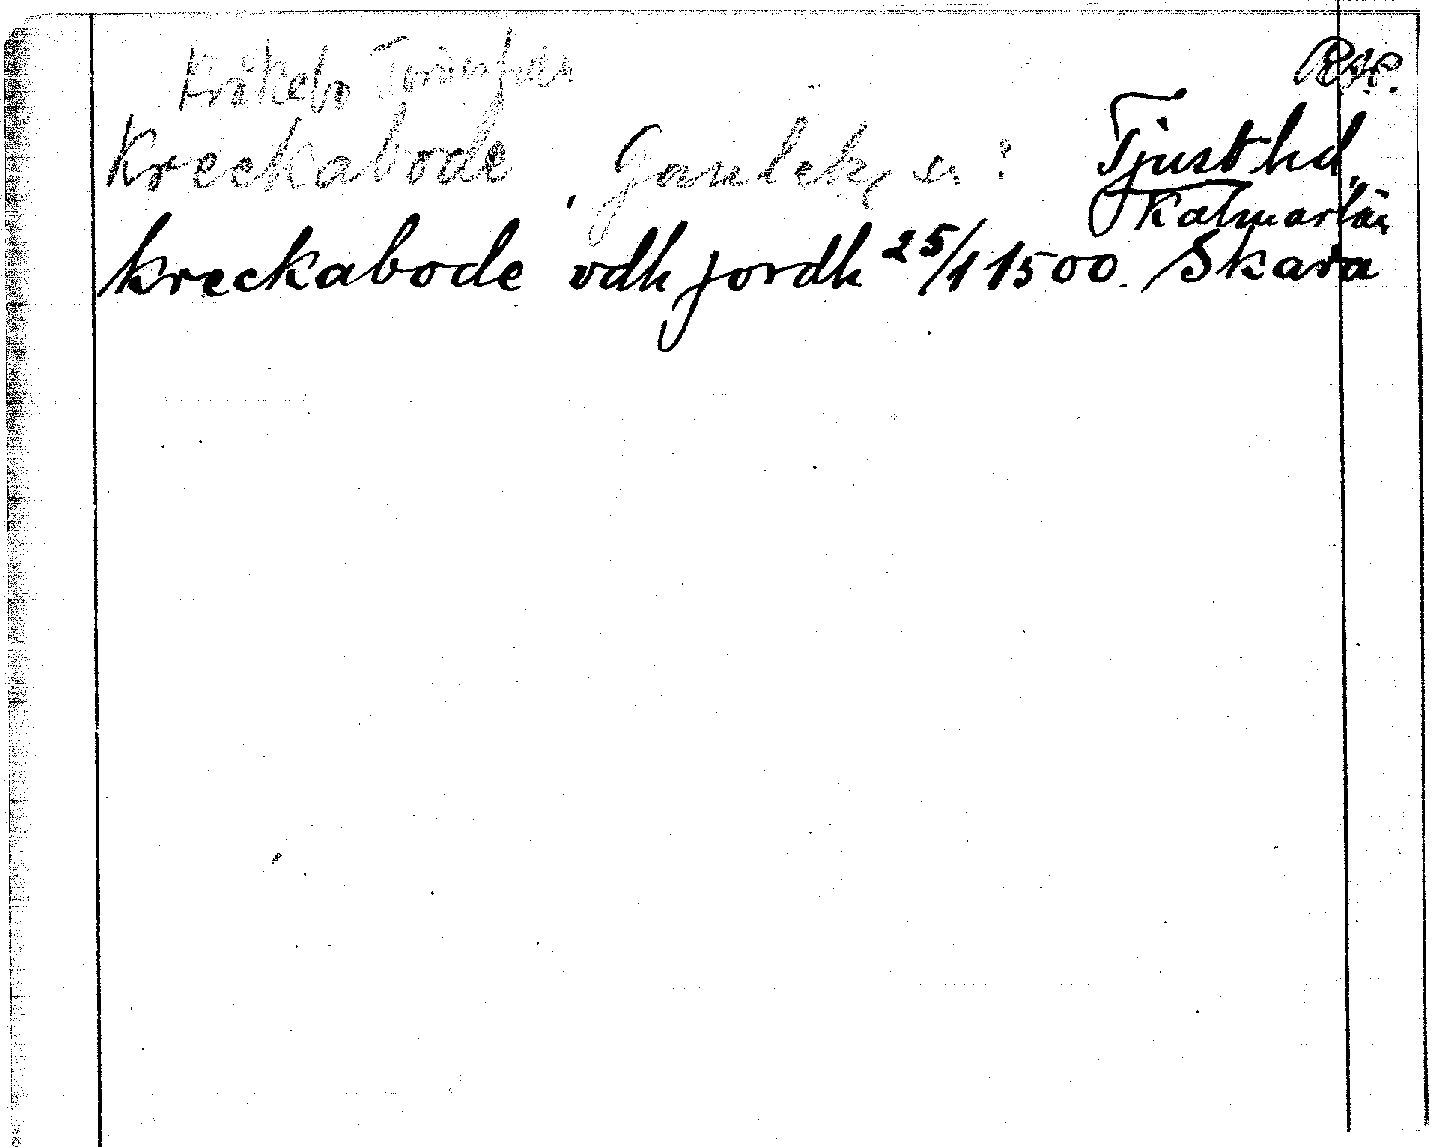 Kråkebo RAP.
Kreckabode, Gamleby sn? Tjust hd,
Kalmar län
kreckabode vdh jordh 25/1 1500. Skara